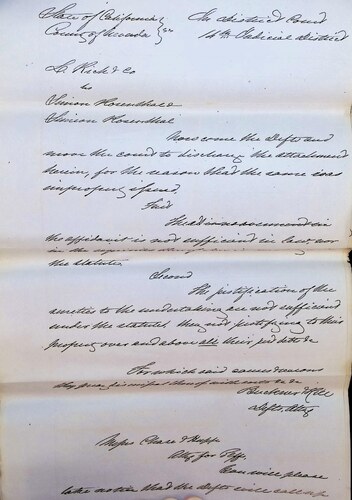 State of California } ss In District Court
County of Nevada 14th Judicial District
& Co
vs
Simon Rosenthal &
Simson Rosenthal
Now come the Defts and
move the court to discharge the attachment
herein, for the reason that the same was
improperly issued.
First
in
the affidavit is not sufficient in law nor
the statute
Second
The justification of the
sureties to the undertaking are not sufficient
under the statute, they not justifying to this
property over and above all their just debts &c
For which said causes & reasons
they pray
Defts Attys
Messrs
Attys for Plff
You will please
take notice that the Defts will